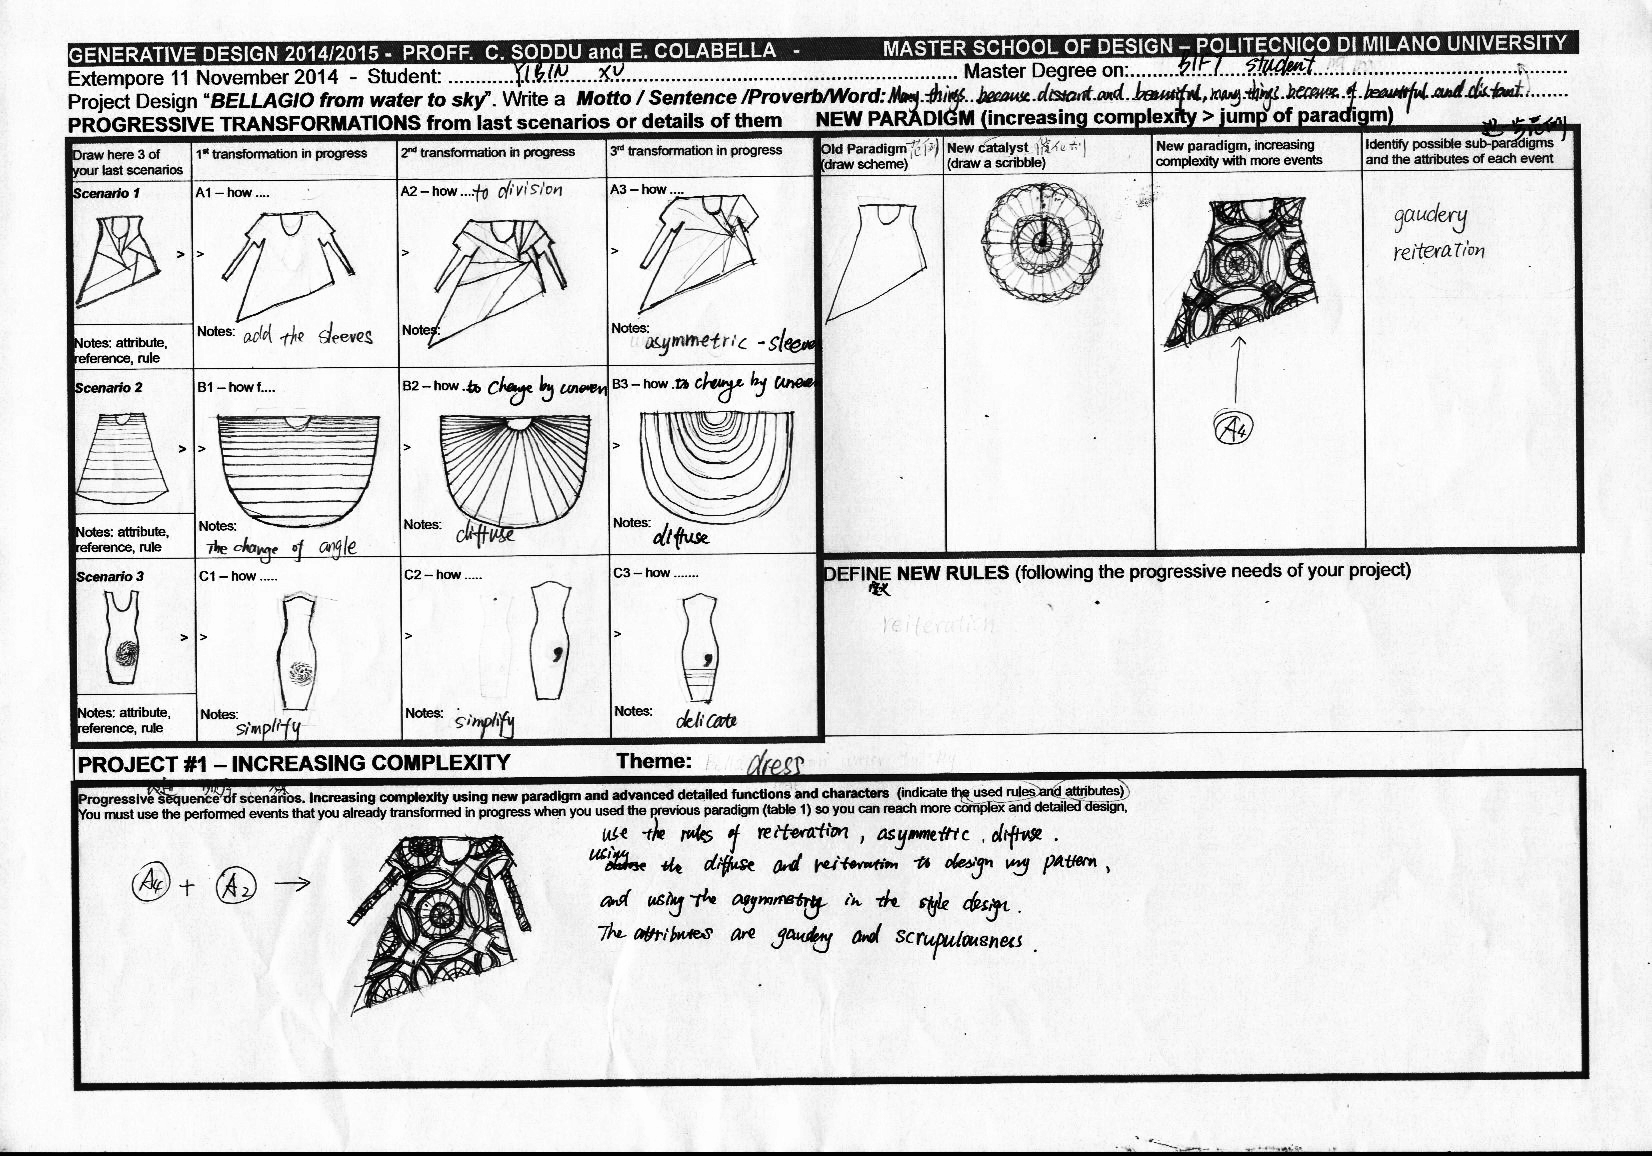 GENERATIVE DESIGN 2014/2015 - PROFF. C. SODDU and E. COLABELLA - MASTER SCHOOL OF DESIGN – POLITECNICO DI MILANO UNIVERSITY
Extempore 11 November 2014 - Student: YIBIN XU Master Degree on: BIFT student
Project Design "BELLAGIO from water to sky". Write a Motto / Sentence /Proverb/Word: Many things because distant and beautiful, many things because of beautiful and distant.
PROGRESSIVE TRANSFORMATIONS from last scenarios or details of them NEW PARADIGM (increasing complexity > jump of paradigm)
Draw here 3 of your last scenarios
1st transformation in progress
2nd transformation in progress
3rd transformation in progress
Old Paradigm (draw scheme)
New catalyst (draw a scribble)
New paradigm, increasing complexity with more events
Identify possible sub-paradigms and the attributes of each event
Scenario 1
A1 – how ....
A2 – how .... to division
A3 – how ....
gaudery
reiteration
> >
>
>
Notes: attribute, reference, rule
Notes: add the sleeves
Notes:
Notes: asymmetric - sleeve
A4
Scenario 2
B1 – how f....
B2 – how .to change by uneven
B3 – how .to change by uneven
> >
>
>
Notes: attribute, reference, rule
Notes: The change of angle
Notes: diffuse
Notes: diffuse
Scenario 3
C1 – how .....
C2 – how .....
C3 – how .......
DEFINE NEW RULES (following the progressive needs of your project)
reiteration
> >
>
>
Notes: attribute, reference, rule
Notes: simplify
Notes: simplify
Notes: delicate
PROJECT #1 – INCREASING COMPLEXITY Theme: dress
Progressive sequence of scenarios. Increasing complexity using new paradigm and advanced detailed functions and characters (indicate the used rules and attributes)
You must use the performed events that you already transformed in progress when you used the previous paradigm (table 1) so you can reach more complex and detailed design,
A4 + A2 →
use the rules of reiteration, asymmetric, diffuse.
using the diffuse and reiteration to design my pattern,
and using the asymmetry in the style design.
The attributes are gaudery and scrupulousness.